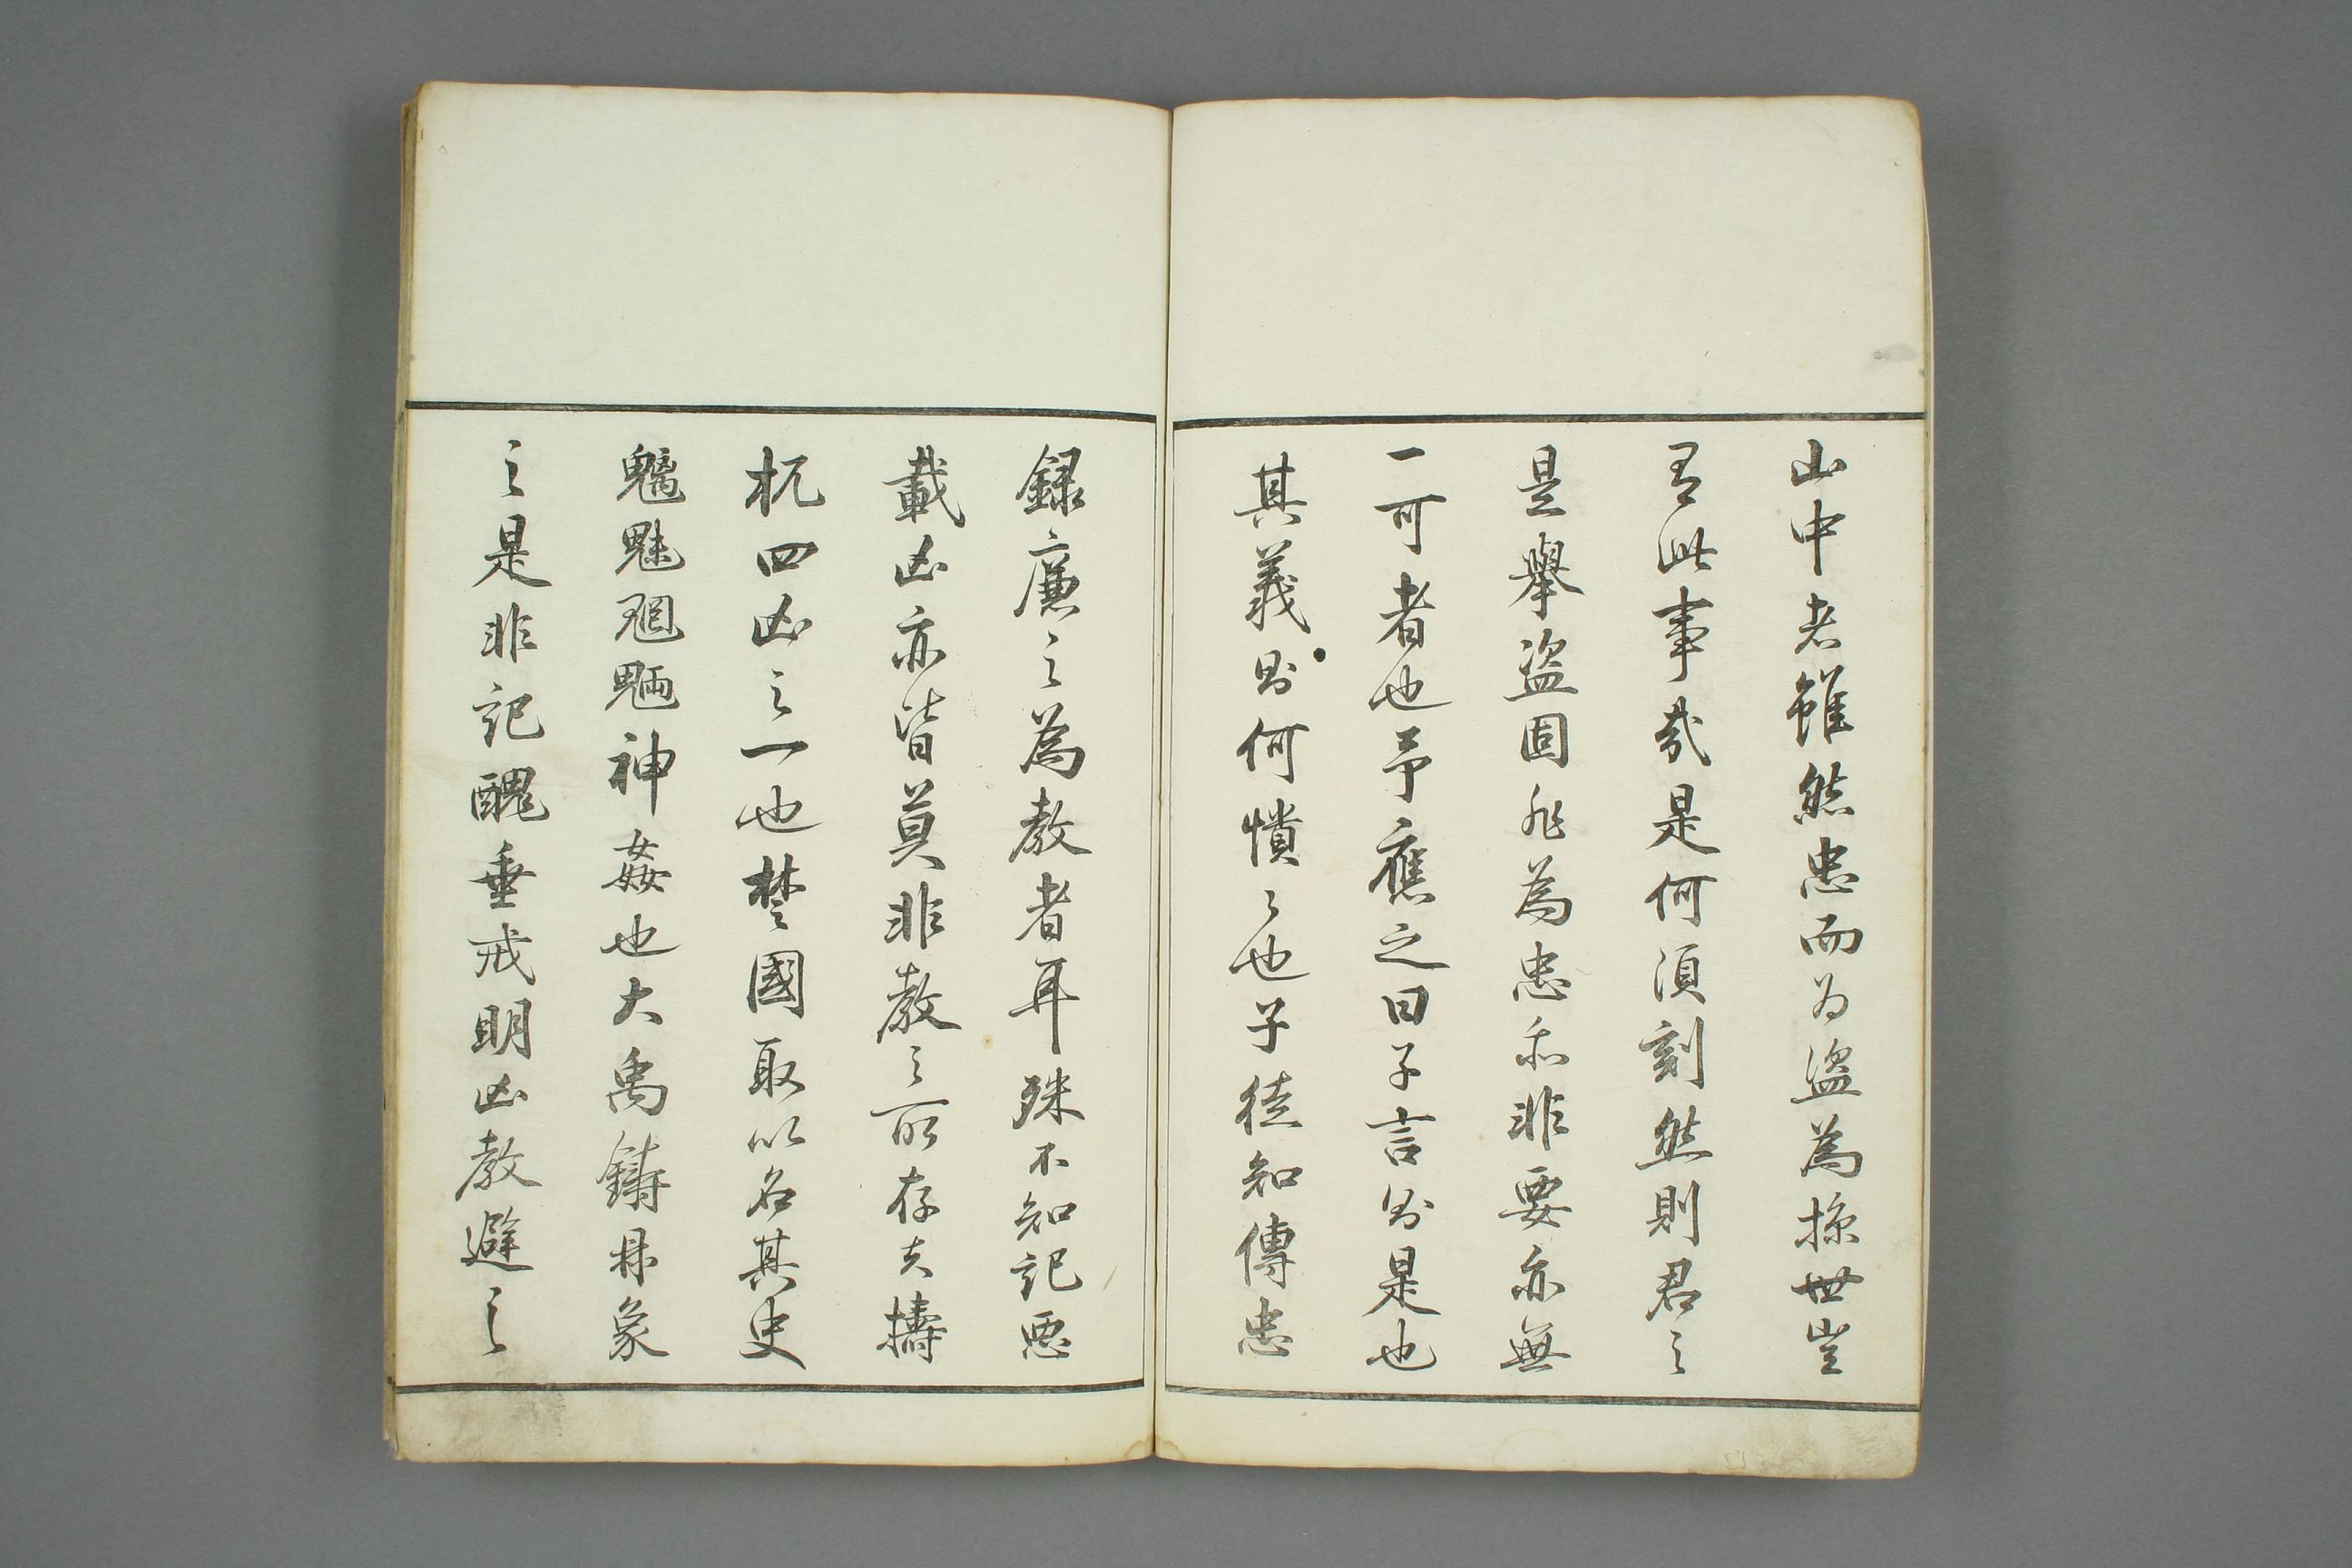 山中老雖然忠而为盜為掠世豈
有此事哉是何須刻然則君之
是舉盜固非為忠和非要亦無
一可者也予應之曰子言則是也
其義則何憒〻也子徒知傳忠
録廉之為教者耳殊不知記惡
載凶亦皆莫非教之所存夫檮
杌四凶之一也楚國取以名其史
魑魅魍魎神姦也大禹鑄鼎象
之是非記醜垂戒明凶教避之